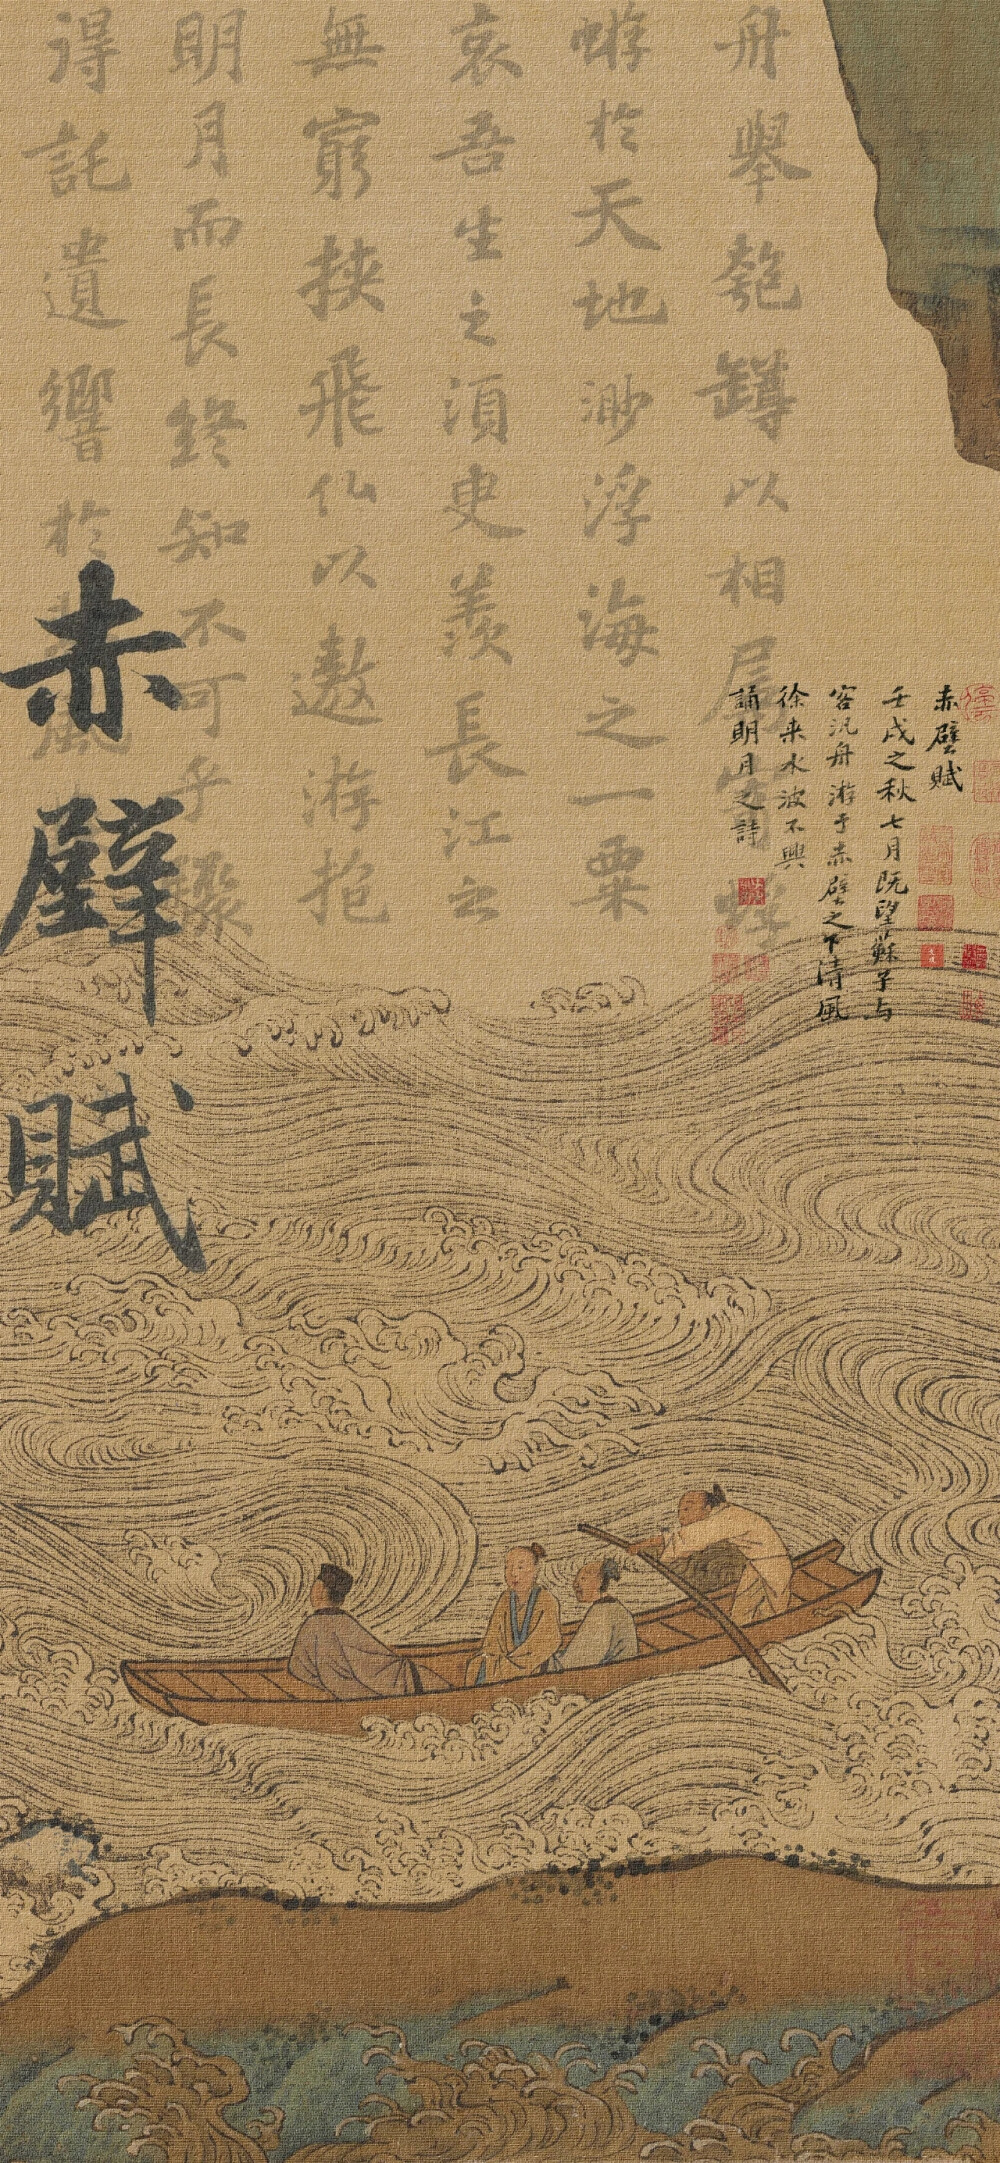 赤壁賦
壬戌之秋七月既望蘇子与
客汎舟游于赤壁之下清風
徐来水波不興
誦明月之詩
舟舉匏罇以相屬寄蜉
蝣於天地渺浮海之一粟
哀吾生之須臾羨長江之
無窮挾飛仙以遨游抱
明月而長終知不可乎驟
得託遺響於悲風
赤壁賦